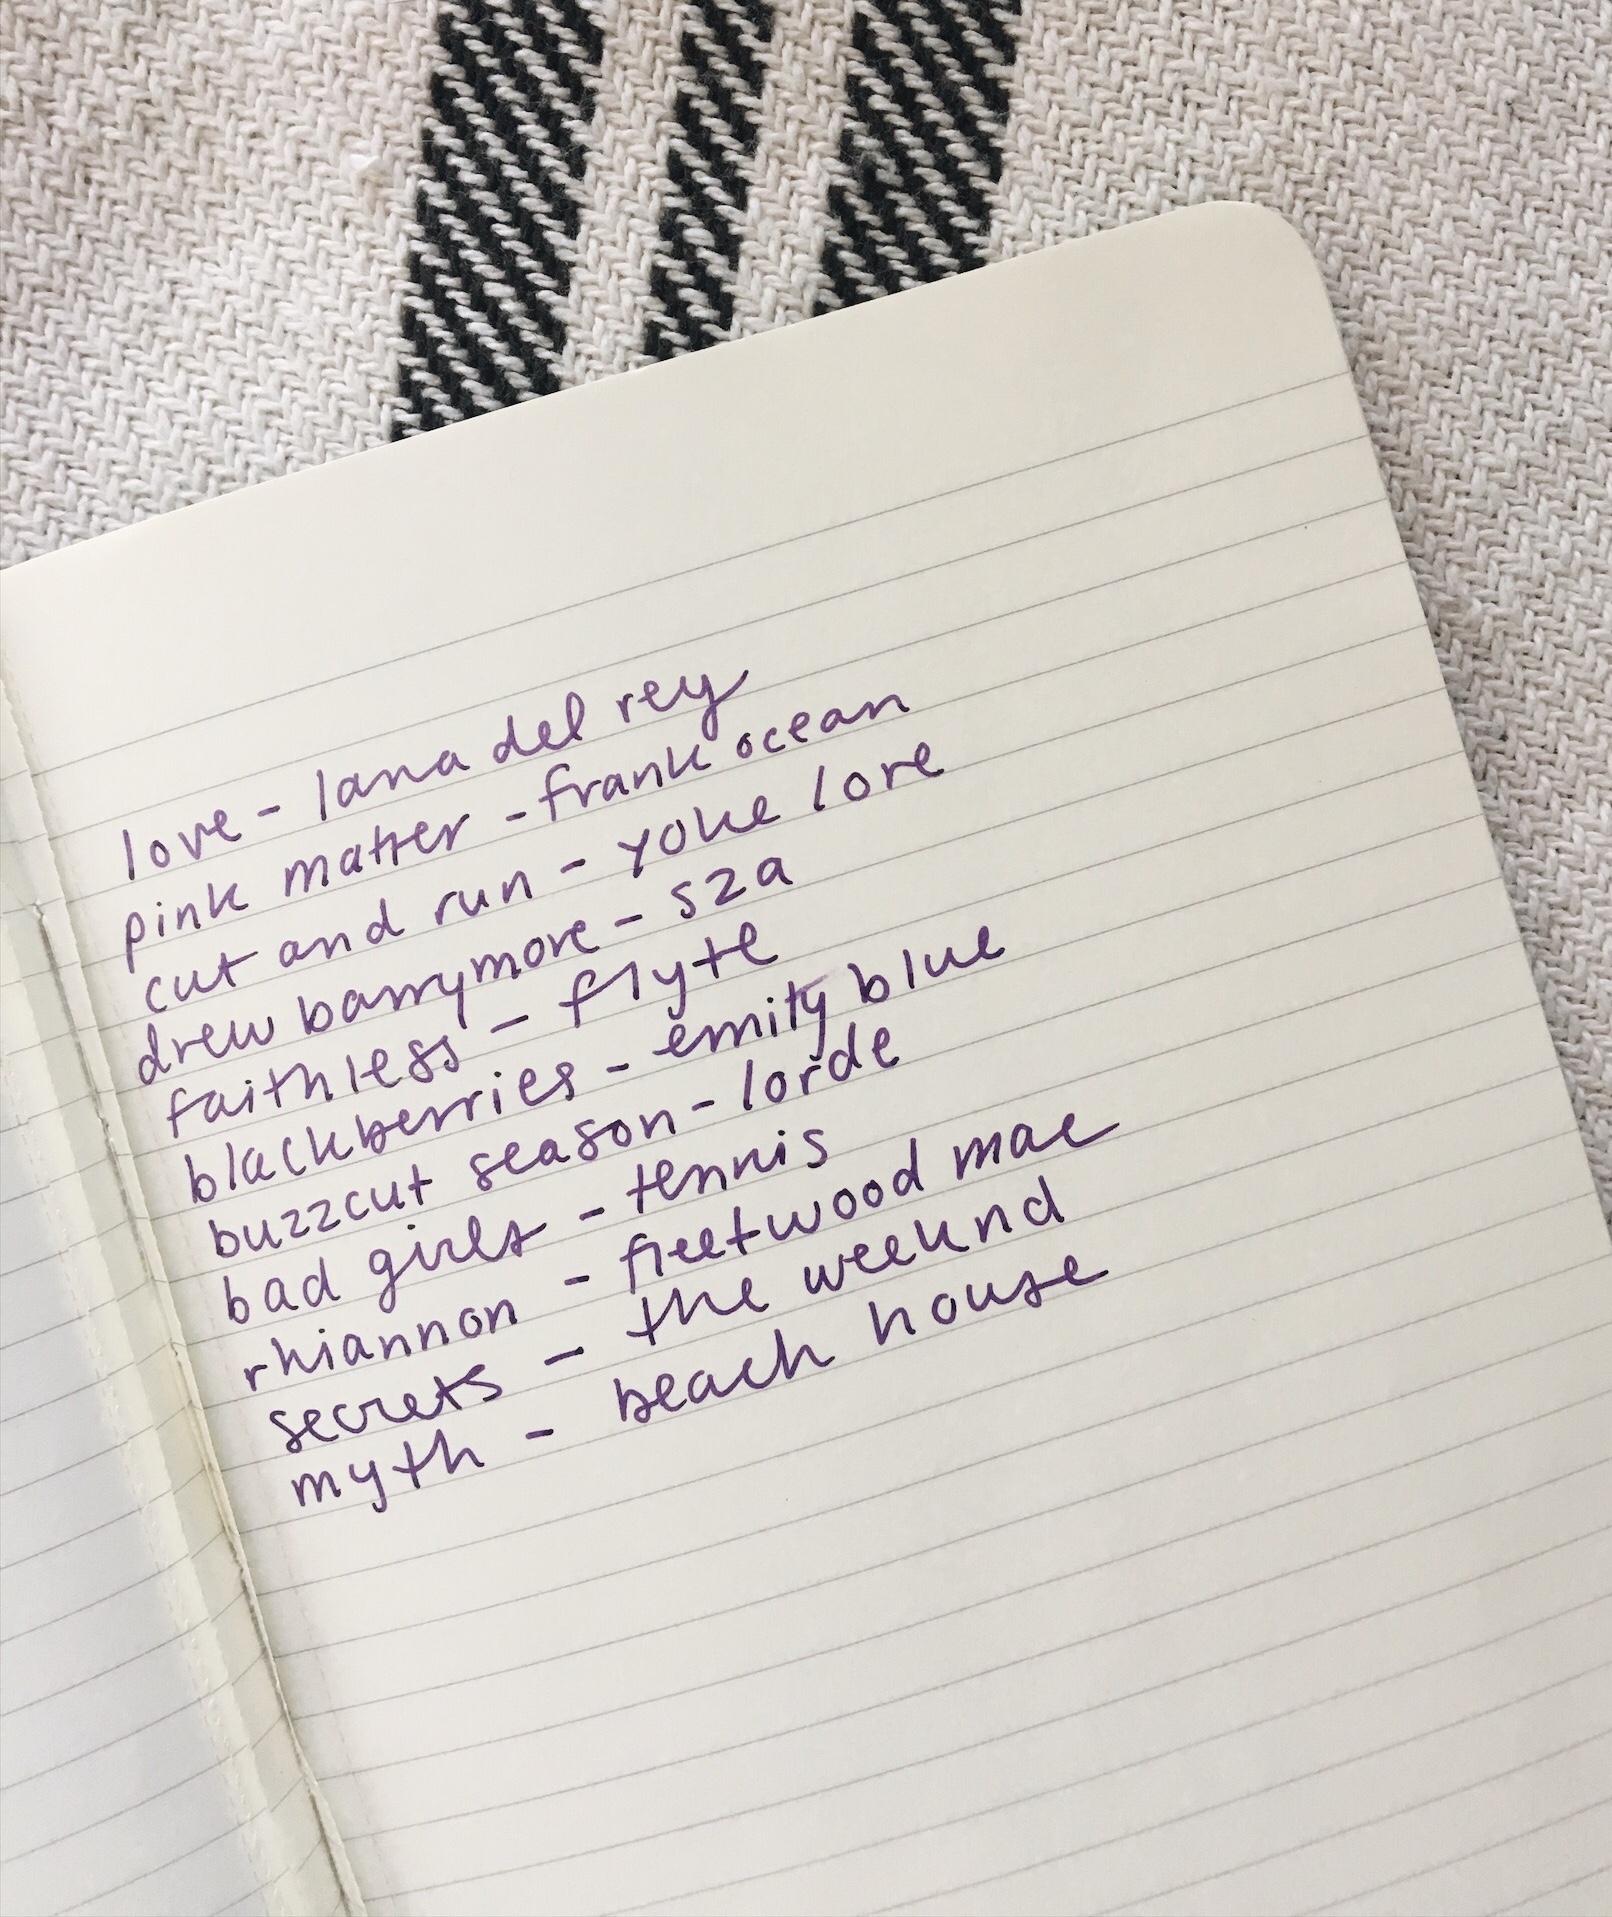 love - lana del rey
pink matter - frank ocean
cut and run - yoke lore
drew barrymore - sza
faithless - flyte
blackberries - emity blue
buzzcut season - lorde
bad girls - tennis
rhiannon - fleetwood mac
secrets - the weeknd
myth - beach house